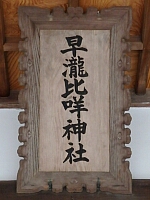 早瀧比咩神社